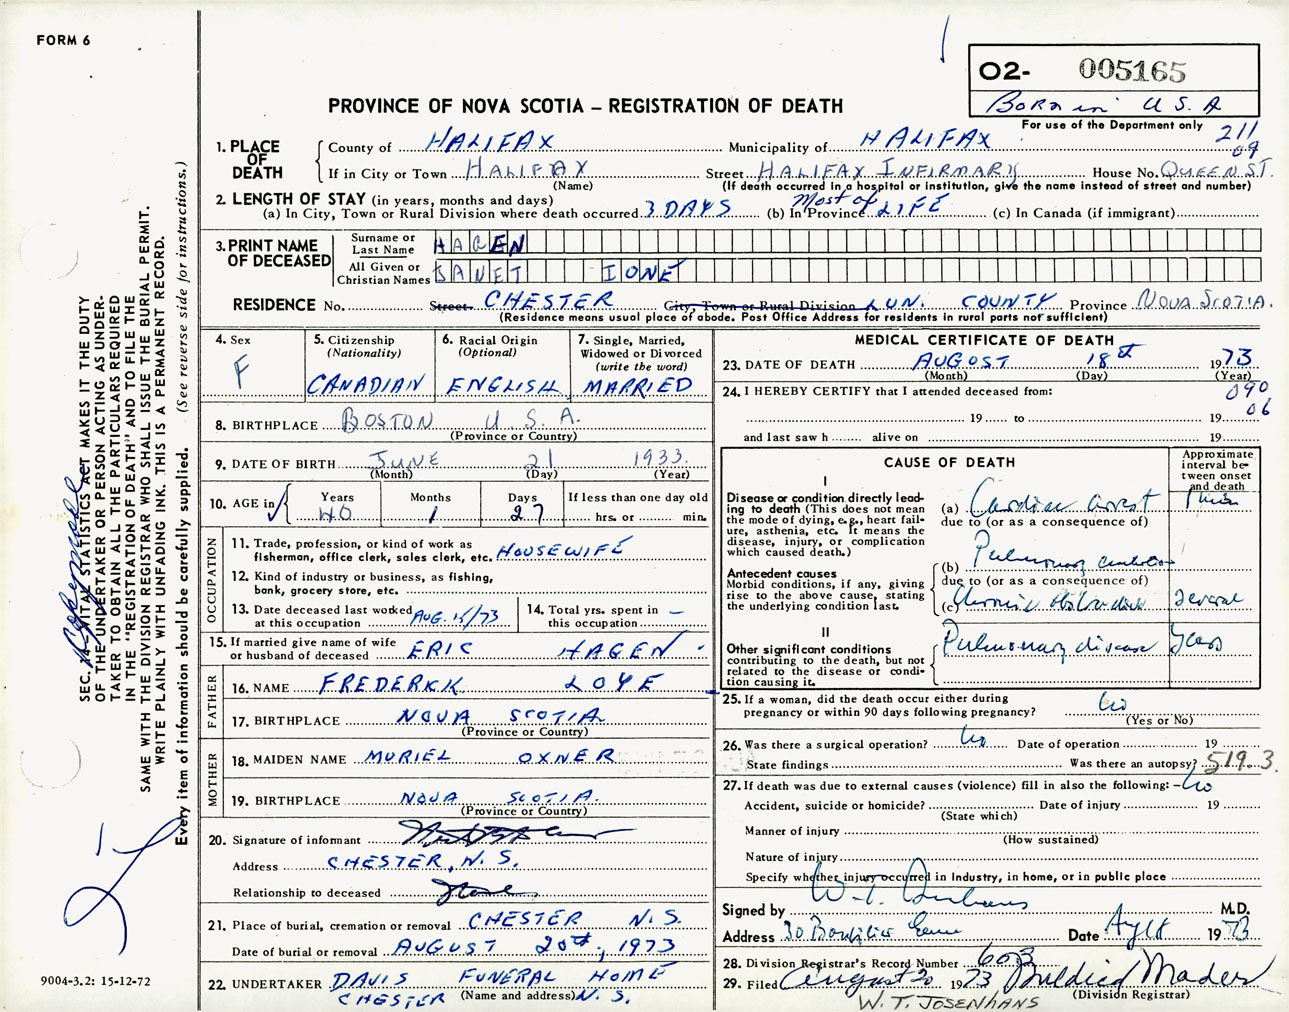 FORM 6
O2- 005165
BORN in U.S.A
For use of the Department only
211
09
PROVINCE OF NOVA SCOTIA – REGISTRATION OF DEATH
1. PLACE OF DEATH
County of HALIFAX Municipality of HALIFAX
If in City or Town HALIFAX Street HALIFAX INFIRMARY House No. QUEEN ST.
(Name) (If death occurred in a hospital or institution, give the name instead of street and number)
2. LENGTH OF STAY (in years, months and days)
(a) In City, Town or Rural Division where death occurred 3 DAYS (b) In Province Most of LIFE (c) In Canada (if immigrant)
3. PRINT NAME OF DECEASED
Surname or Last Name HAGEN
All Given or Christian Names JANET IONE
RESIDENCE No. Street CHESTER City, Town or Rural Division LUN. COUNTY Province NOVA SCOTIA.
(Residence means usual place of abode. Post Office Address for residents in rural parts not sufficient)
4. Sex
F
5. Citizenship
(Nationality)
CANADIAN
6. Racial Origin
(Optional)
ENGLISH
7. Single, Married,
Widowed or Divorced
(write the word)
MARRIED
8. BIRTHPLACE BOSTON U.S.A.
(Province or Country)
9. DATE OF BIRTH JUNE 21 1933
(Month) (Day) (Year)
10. AGE in
Years Months Days If less than one day old
40 1 27 hrs. or min.
OCCUPATION
11. Trade, profession, or kind of work as
fisherman, office clerk, sales clerk, etc. HOUSEWIFE
12. Kind of industry or business, as fishing,
bank, grocery store, etc.
13. Date deceased last worked
at this occupation AUG. 15/73
14. Total yrs. spent in
this occupation –
15. If married give name of wife
or husband of deceased ERIC HAGEN
FATHER
16. NAME FREDERICK LOYE
17. BIRTHPLACE NOVA SCOTIA
(Province or Country)
MOTHER
18. MAIDEN NAME MURIEL OXNER
19. BIRTHPLACE NOVA SCOTIA.
(Province or Country)
20. Signature of informant
Address CHESTER, N.S.
Relationship to deceased
21. Place of burial, cremation or removal CHESTER N.S.
Date of burial or removal AUGUST 20th, 1973
22. UNDERTAKER DAVIS FUNERAL HOME
CHESTER (Name and address) N.S.
MEDICAL CERTIFICATE OF DEATH
23. DATE OF DEATH AUGUST 18th 1973
(Month) (Day) (Year)
090
06
24. I HEREBY CERTIFY that I attended deceased from:
19 to 19
and last saw h alive on 19
CAUSE OF DEATH
Approximate
interval be-
tween onset
and death
I
Disease or condition directly lead-
ing to death (This does not mean
the mode of dying, e.g., heart fail-
ure, asthenia, etc. It means the
disease, injury, or complication
which caused death.)
(a) Cardiac arrest
due to (or as a consequence of)
Antecedent causes
Morbid conditions, if any, giving
rise to the above cause, stating
the underlying condition last.
(b) Pulmonary embolism
due to (or as a consequence of)
(c) Chronic obstructive several
II
Other significant conditions
contributing to the death, but not
related to the disease or condi-
tion causing it.
Pulmonary disease years
25. If a woman, did the death occur either during
pregnancy or within 90 days following pregnancy? No
(Yes or No)
26. Was there a surgical operation? No Date of operation 19
State findings Was there an autopsy? 519.3
27. If death was due to external causes (violence) fill in also the following: – No
Accident, suicide or homicide? Date of injury 19
(State which)
Manner of injury
(How sustained)
Nature of injury
Specify whether injury occurred in Industry, in home, or in public place
Signed by W.T. Josenhans M.D.
Address 30 Date 1973
28. Division Registrar's Record Number 603
29. Filed August 20 1973 Mader
(Division Registrar)
W.T. JOSENHANS
SEC. 14 – VITAL STATISTICS ACT MAKES IT THE DUTY
OF THE UNDERTAKER OR PERSON ACTING AS UNDER-
TAKER TO OBTAIN ALL THE PARTICULARS REQUIRED
IN THE "REGISTRATION OF DEATH" AND TO FILE THE
SAME WITH THE DIVISION REGISTRAR WHO SHALL ISSUE THE BURIAL PERMIT.
WRITE PLAINLY WITH UNFADING INK. THIS IS A PERMANENT RECORD.
Every item of information should be carefully supplied. (See reverse side for instructions.)
9004-3.2: 15-12-72